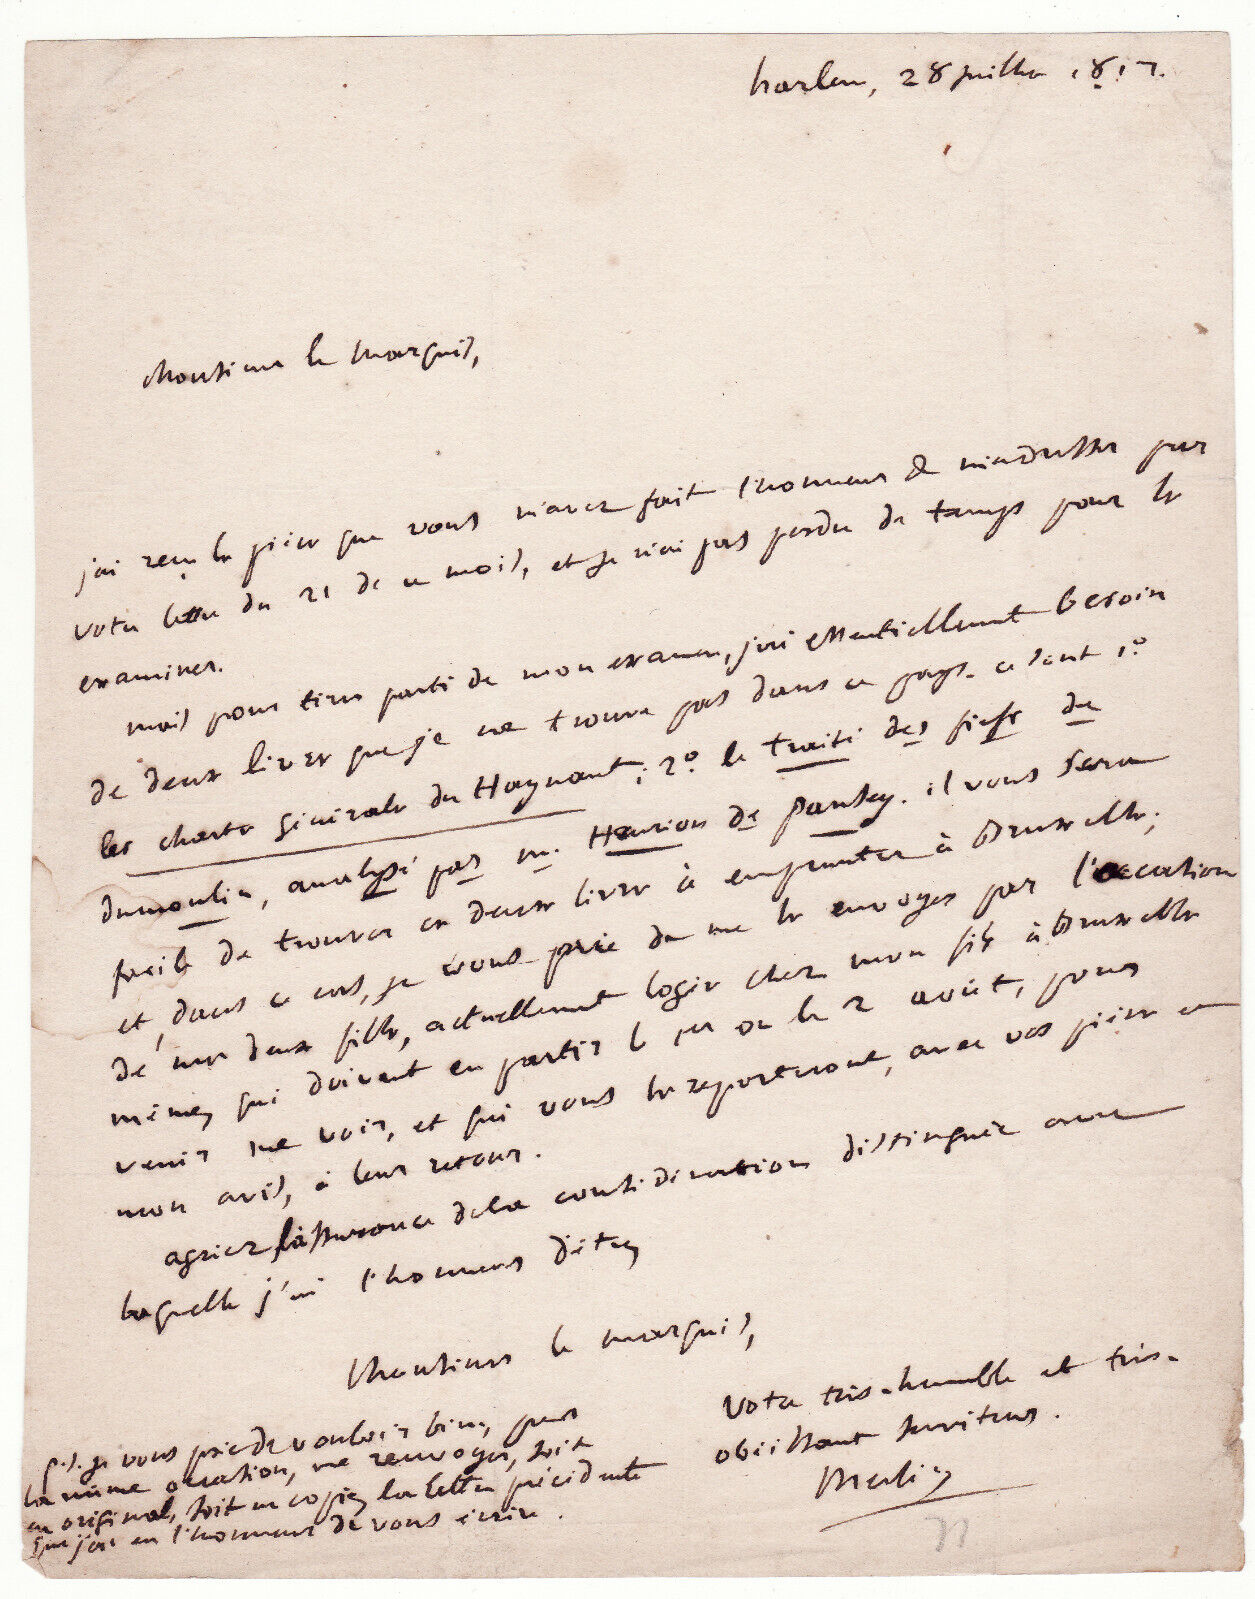 harlem, 28 juillet 1817.
Monsieur le Marquis,
j'ai reçu les pièces que vous m'avez fait l'honneur de m'adresser par
votre lettre du 21 de ce mois, et je n'ai pas perdu de temps pour les
examiner.
mais pour tirer parti de mon examen, j'ai essentiellement besoin
de deux livres que je ne trouve pas dans ce pays. ce sont 1.º
les chartes générales du Haynaut; 2.º le traité des fiefs de
dumoulin, analysé par m. Henrion de Pansey. il vous sera
facile de trouver ces deux livres à emprunter à Bruxelles;
et, dans ce cas, je vous prie de me les envoyer par l'occasion
de mes deux filles, actuellement logées chez mon fils à Bruxelles
même, qui doivent en partir le 1er ou le 2 août, pour
venir me voir, et qui vous les reporteront, avec vos pièces et
mon avis, à leur retour.
agréez l'assurance de la considération distinguée avec
laquelle j'ai l'honneur d'être
Monsieur le marquis,
Votre très-humble et très-
obéissant serviteur.
Merlin
p.s. je vous prie de vouloir bien, par
la même occasion, me renvoyer, soit
en original, soit en copie, la lettre précédente
que j'ai eu l'honneur de vous écrire.